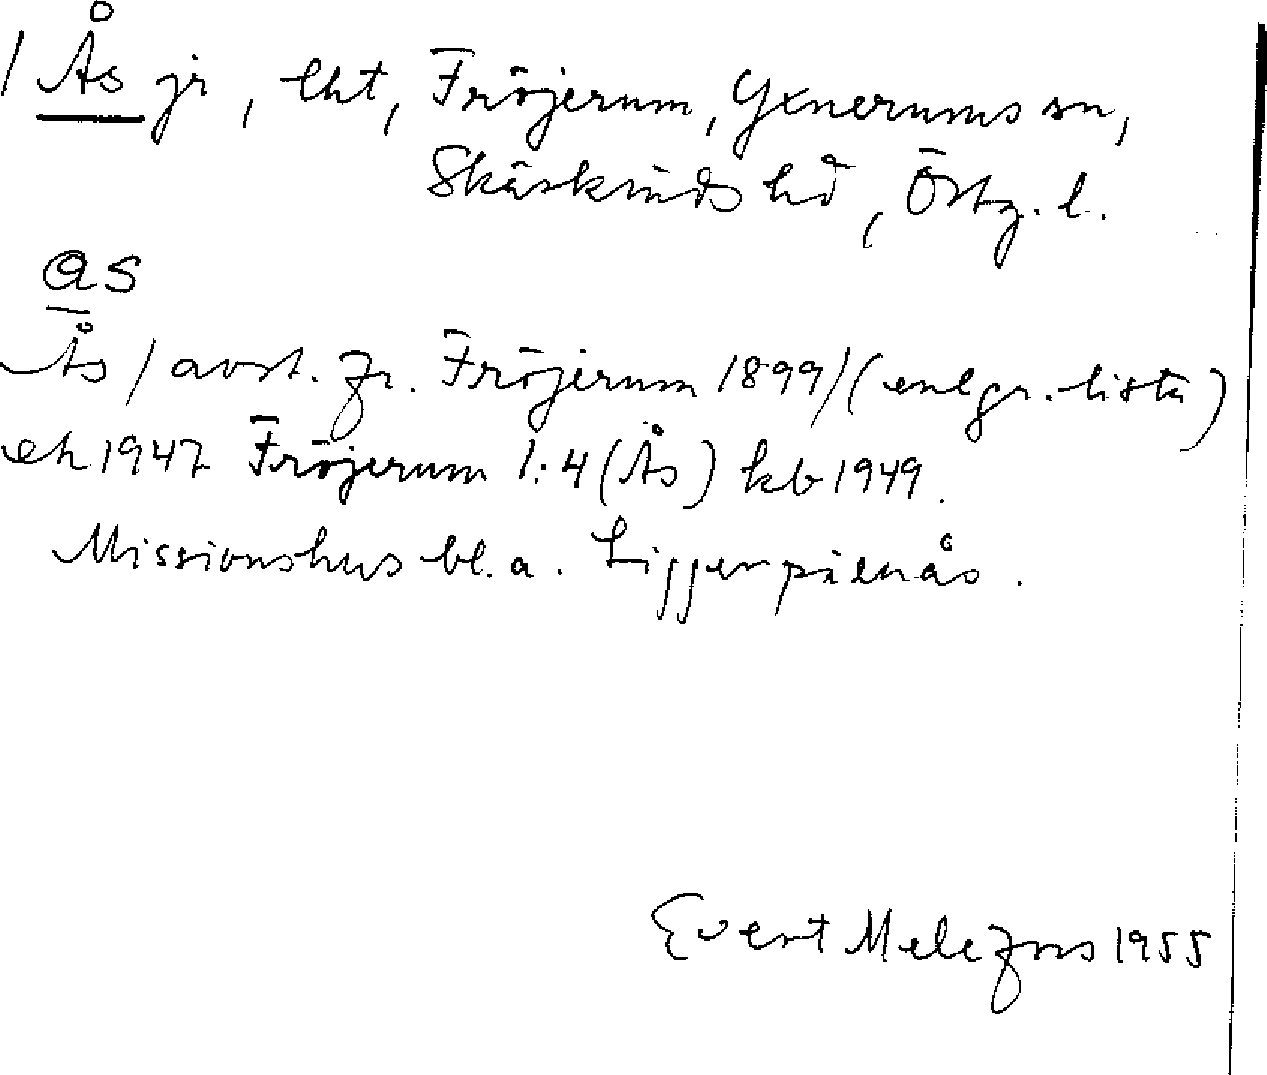 / Ås jr, lht, Fröjerum, Yxnerums sn,
Skärkinds hd, Östg. l.
ɑs
Ås / avst. fr. Fröjerum 1899/ (enl gr.-lista)
eh 1947 Fröjerum 1:4 (Ås) kb 1949.
Missionshus bl. a. Ligger på en ås.
Evert Melefors 1955